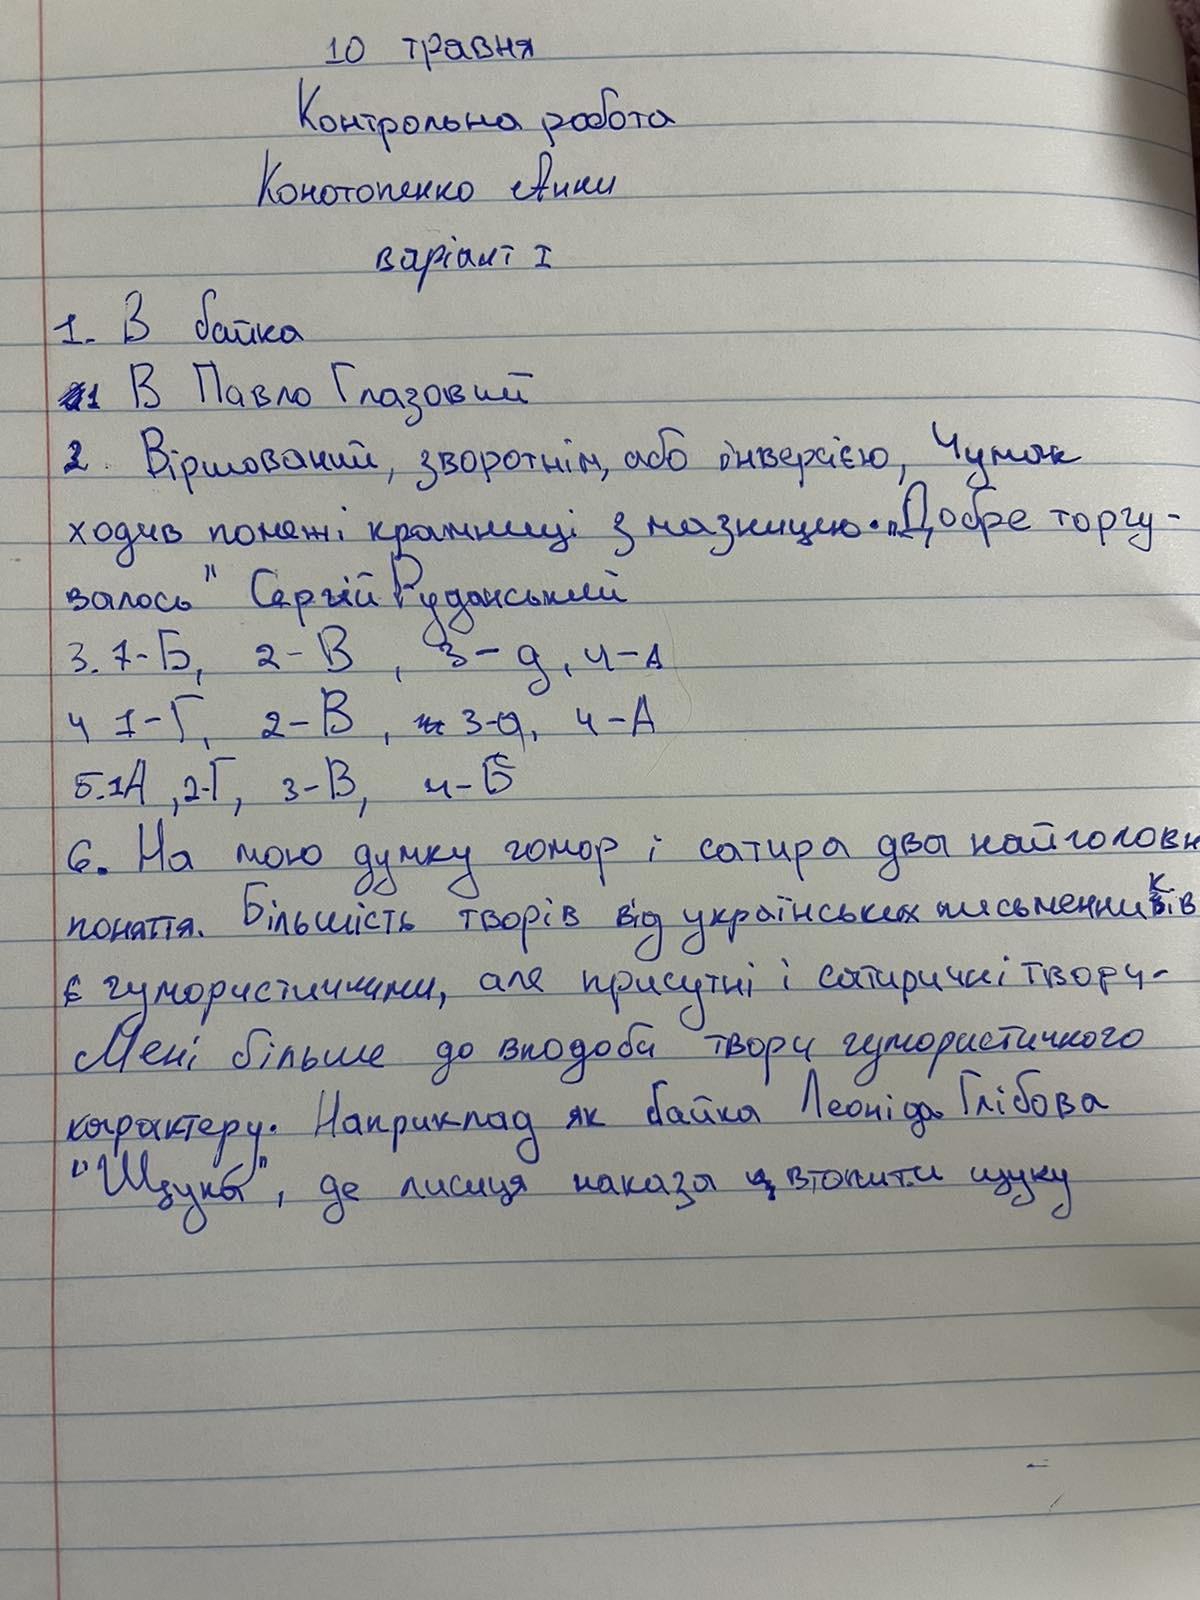 10 травня
Контрольна робота
Конотопенко Анни
варіант I
1. В байка
1 В Павло Глазовий
2. Віршований, зворотнім, або інверсією, Чумак
ходив помежі крамниці з мазницею. „Добре торгу-
валось" Сергій Руданський
3. 1-Б, 2-В, 3-д, 4-А
4 1-Г, 2-В, 3-д, 4-А
5. 1А, 2-Г, 3-В, 4-Б
6. На мою думку гомор і сатира два найголовн
поняття. Більшість творів від українських письменників
є гумористичними, але присутні і сатиричні твори.
Мені більше до вподоби твори гумористичного
характеру. Наприклад як байка Леоніда Глібова
"Щука", де лисиця наказа втопити щуку